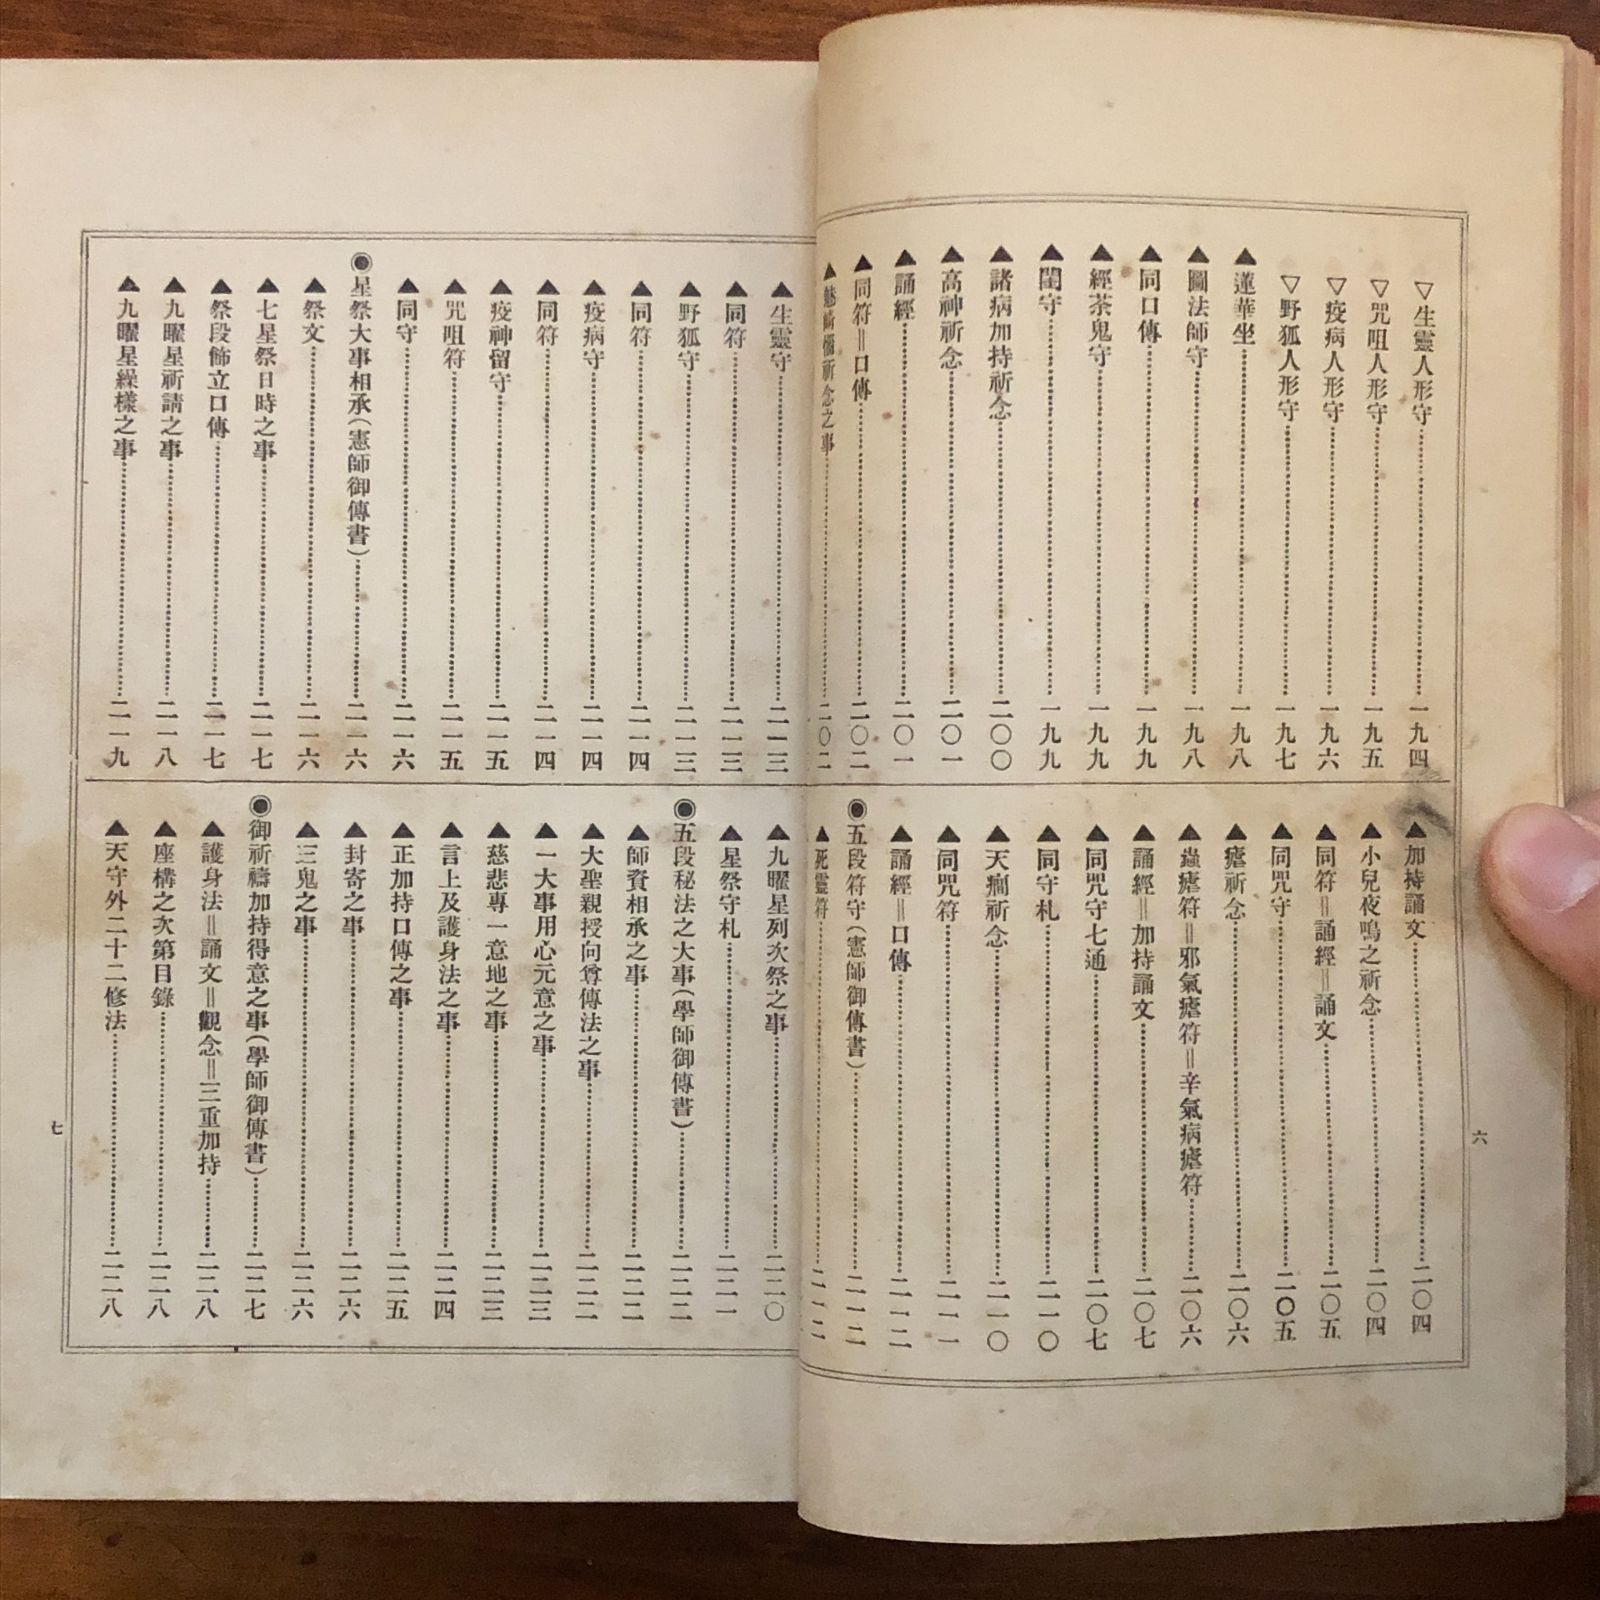 ▽生靈人形守……一九四
▽咒咀人形守……一九五
▽疫病人形守……一九六
▽野狐人形守……一九七
▲蓮華坐……一九八
▲圖法師守……一九八
▲同口傳……一九九
▲經茶鬼守……一九九
▲閨守……一九九
▲諸病加持祈念……二〇〇
▲高神祈念……二〇一
▲誦經……二〇一
▲同符＝口傳……二〇二
祈念之事……二〇二
▲加持誦文……二〇四
▲小兒夜鳴之祈念……二〇四
▲同符＝誦經＝誦文……二〇五
▲同咒守……二〇五
▲瘧祈念……二〇六
▲蟲瘧符＝邪氣瘧符＝辛氣病瘧符……二〇六
▲誦經＝加持誦文……二〇七
▲同咒守七通……二〇七
▲同守札……二一〇
▲天痾祈念……二一〇
▲同咒符……二一一
▲誦經＝口傳……二一二
◉五段符守（憲師御傳書）……二一二
▲死靈符……二一二
六
▲生靈守……二一三
▲同符……二一三
▲野狐守……二一三
▲同符……二一四
▲疫病守……二一四
▲同符……二一四
▲疫神留守……二一五
▲咒咀符……二一五
▲同守……二一六
◉星祭大事相承（憲師御傳書）……二一六
▲祭文……二一六
▲七星祭日時之事……二一七
▲祭段飾立口傳……二一七
▲九曜星祈請之事……二一八
▲九曜星繰樣之事……二一九
▲九曜星列次祭之事……二二〇
▲星祭守札……二二一
◉五段秘法之大事（學師御傳書）……二二二
▲師資相承之事……二二二
▲大聖親授向尊傳法之事……二二二
▲一大事用心元意之事……二二三
▲慈悲專一意地之事……二二三
▲言上及護身法之事……二二四
▲正加持口傳之事……二二五
▲封寄之事……二二六
▲三鬼之事……二二六
◉御祈禱加持得意之事（學師御傳書）……二二七
▲護身法＝誦文＝觀念＝三重加持……二二八
▲座構之次第目錄……二二八
▲天守外二十二修法……二二八
七